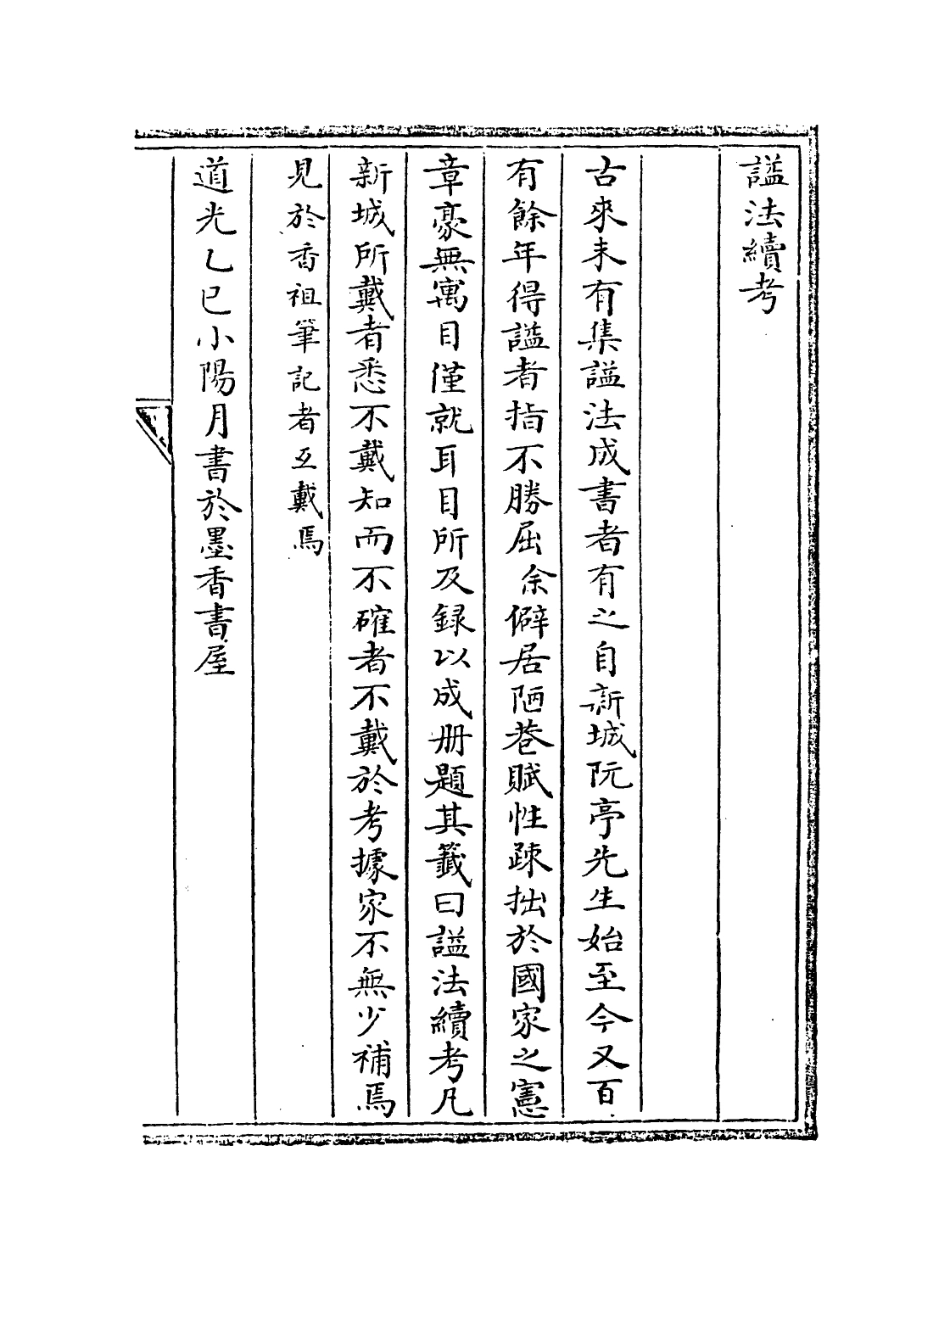 諡法續考
古來未有集諡法成書者有之自新城阮亭先生始至今又百
有餘年得諡者指不勝屈余僻居陋巷賦性踈拙於國家之憲
章豪無寓目僅就耳目所及録以成册題其籤曰諡法續考凡
新城所戴者悉不戴知而不確者不戴於考據家不無少補焉
見於香祖筆記者互戴焉
道光乙巳小陽月書於墨香書屋